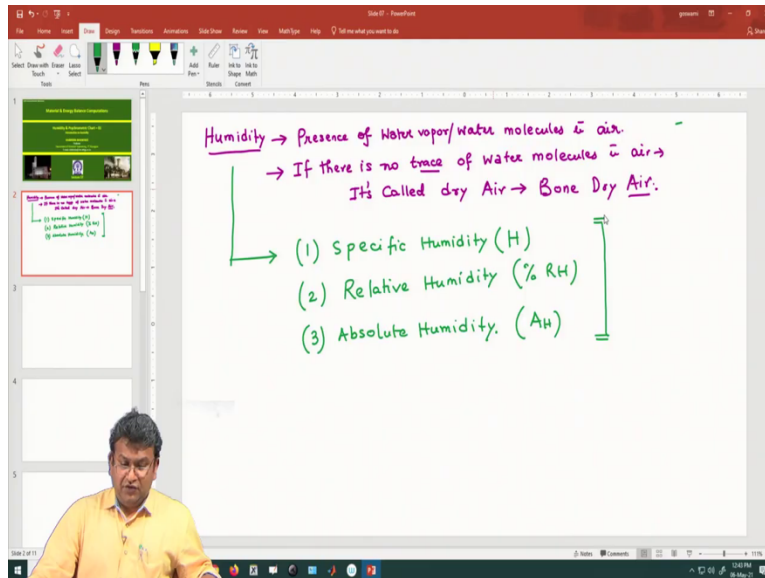 Slide 07 - PowerPoint
goswami
File Home Insert Draw Design Transitions Animations Slide Show Review View MathType Help Tell me what you want to do
Select Draw with Touch Eraser Lasso Select Add Pen Ruler Ink to Shape Ink to Math
Tools Pens Stencils Convert
Humidity → Presence of water vapor/water molecules in air.
→ If there is no trace of water molecules in air →
It's Called dry Air → Bone Dry Air.
(1) Specific Humidity (H)
(2) Relative Humidity (% RH)
(3) Absolute Humidity. (AH)
1
2
3
4
5
Slide 2 of 11
Notes Comments 111%
12:43 PM
06-May-21